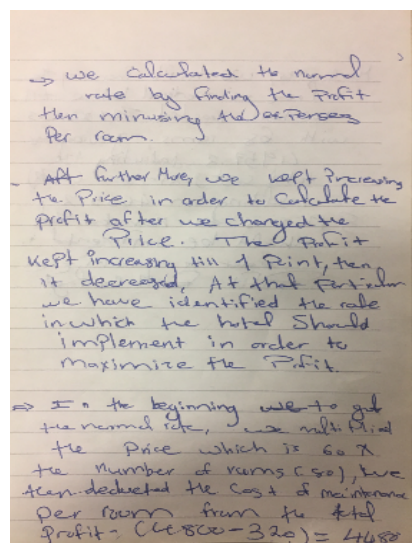 → we Calculated the normal
rate by finding the Profit
then minusing the expenses
Per room.
- Aft further More, we kept increasing
the Price in order to Calculate the
profit after we changed the
Price. The Profit
kept increasing till 1 Point, then
it decreased, At that Particular
we have identified the rate
in which the hotel Should
implement in order to
maximize the Profit.
⇒ In the beginning to get
the normal rate, we multiplied
the Price which is 60 x
the number of rooms (80), we
then deducted the Cost of maintenance
per room from the total
Profit - (4800 - 320) = 4480